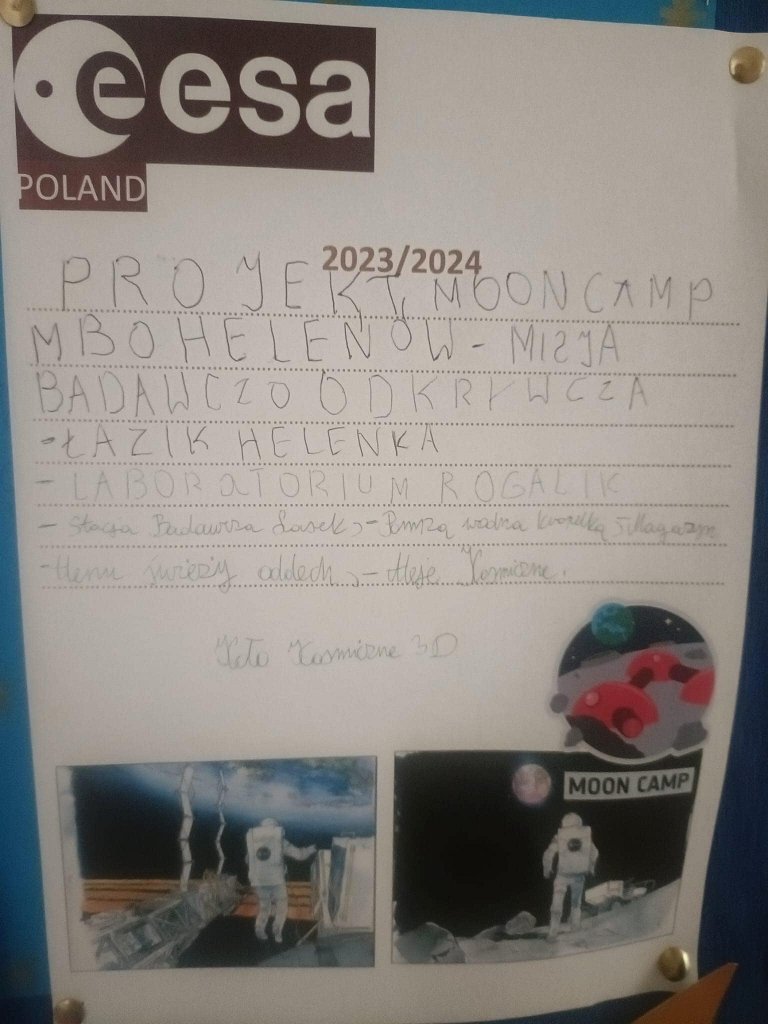 esa
POLAND
2023/2024
PROJEKT, MOON CAMP
MBO HELENÓW - MISJA
BADAWCZO ODKRYWCZA
- ŁAZIK HELENKA
- LABORATORIUM ROGALIK
- Stacja Badawcza Lasek, - wodna i Magazyn
- Henu świeży oddech, - Aleje Kosmiczne.
Koło Kosmiczne 3D
MOON CAMP